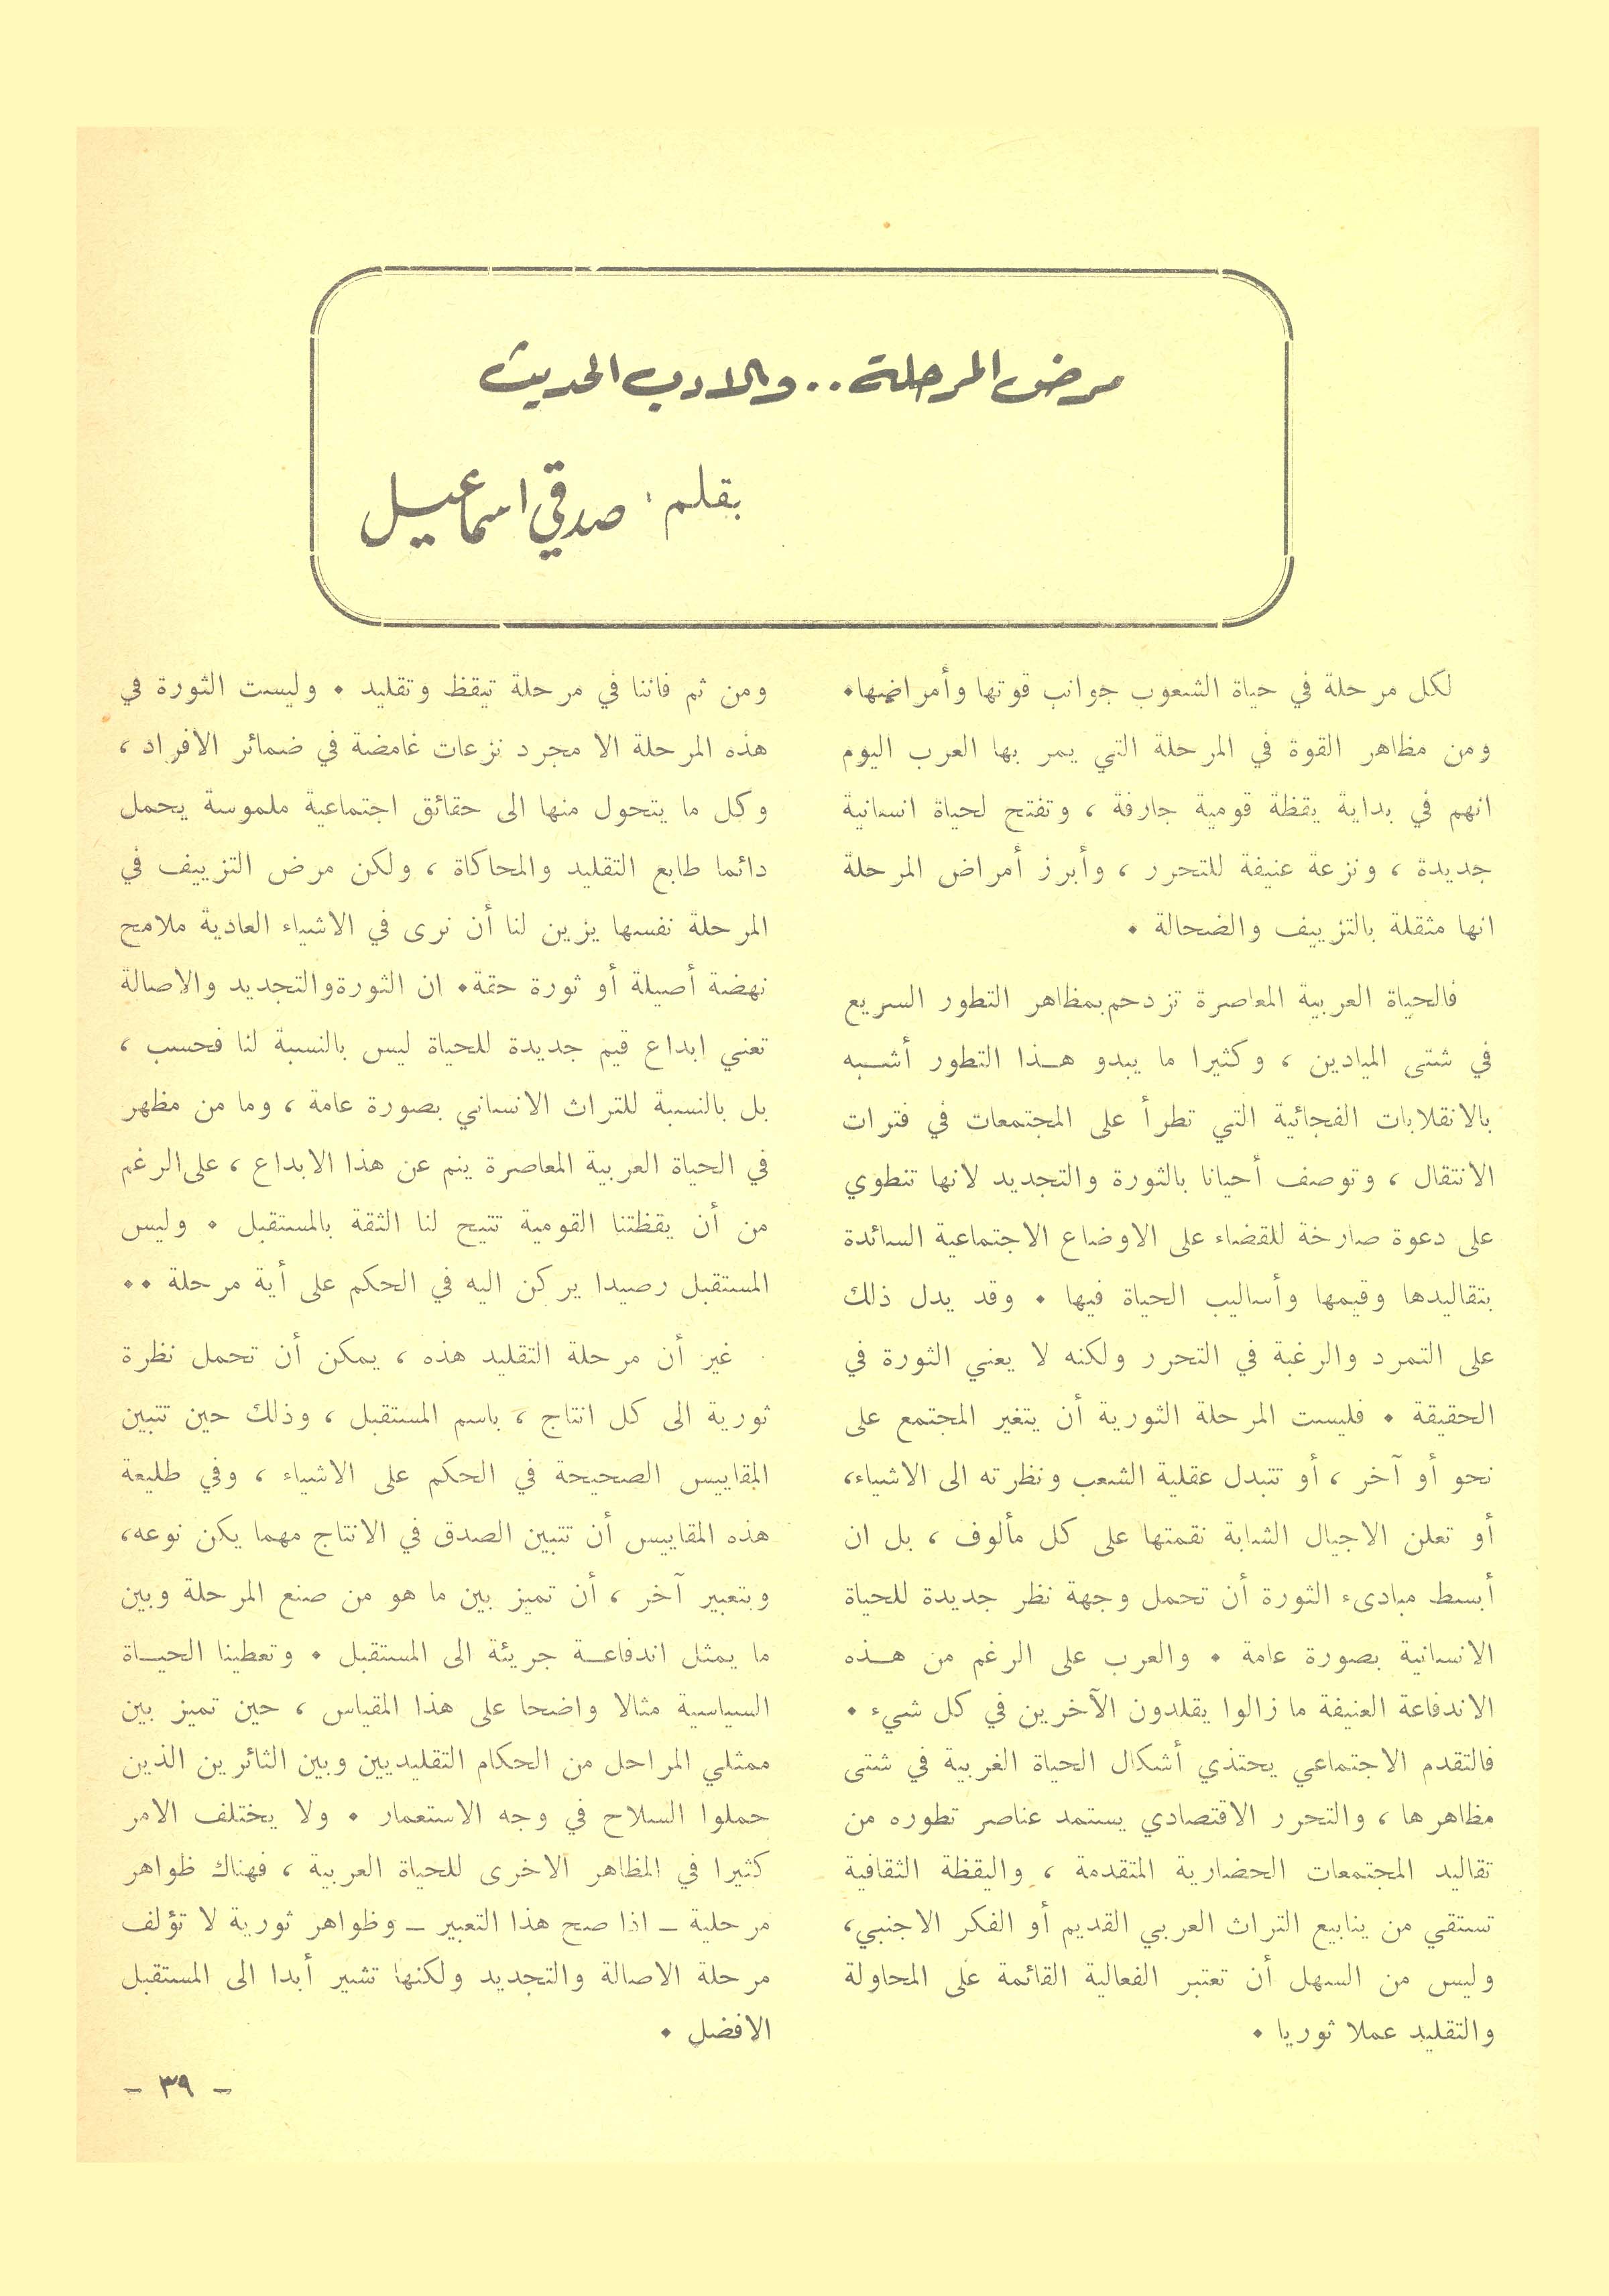 مرض المرحلة . . والادب الحديث
بقلم : صدقي اسماعيل
لكل مرحلة في حياة الشعوب جوانب قوتها وأمراضها٠
ومن مظاهر القوة في المرحلة التي يمر بها العرب اليوم
انهم في بداية يقظة قومية جارفة ، وتفتح لحياة انسانية
جديدة ، ونزعة عنيفة للتحرر ، وأبرز أمراض المرحلة
انها مثقلة بالتزييف والضحالة ٠
فالحياة العربية المعاصرة تزدحم بمظاهر التطور السريع
في شتى الميادين ، وكثيرا ما يبدو هــذا التطور أشــبه
بالانقلابات الفجائية التي تطرأ على المجتمعات في فترات
الانتقال ، وتوصف أحيانا بالثورة والتجديد لانها تنطوي
على دعوة صارخة للقضاء على الاوضاع الاجتماعية السائدة
بتقاليدها وقيمها وأساليب الحياة فيها ٠ وقد يدل ذلك
على التمرد والرغبة في التحرر ولكنه لا يعني الثورة في
الحقيقة ٠ فليست المرحلة الثورية أن يتغير المجتمع على
نحو أو آخر ، أو تتبدل عقلية الشعب ونظرته الى الاشياء،
أو تعلن الاجيال الشابة نقمتها على كل مألوف ، بل ان
أبسط مبادىء الثورة أن تحمل وجهة نظر جديدة للحياة
الانسانية بصورة عامة ٠ والعرب على الرغم من هــذه
الاندفاعة العنيفة ما زالوا يقلدون الآخرين في كل شيء ٠
فالتقدم الاجتماعي يحتذي أشكال الحياة الغربية في شتى
مظاهرها ، والتحرر الاقتصادي يستمد عناصر تطوره من
تقاليد المجتمعات الحضارية المتقدمة ، واليقظة الثقافية
تستقي من ينابيع التراث العربي القديم أو الفكر الاجنبي،
وليس من السهل أن تعتبر الفعالية القائمة على المحاولة
والتقليد عملا ثوريا ٠
ومن ثم فاننا في مرحلة تيقظ وتقليد ٠ وليست الثورة في
هذه المرحلة الا مجرد نزعات غامضة في ضمائر الافراد ،
وكل ما يتحول منها الى حقائق اجتماعية ملموسة يحمل
دائما طابع التقليد والمحاكاة ، ولكن مرض التزييف في
المرحلة نفسها يزين لنا أن نرى في الاشياء العادية ملامح
نهضة أصيلة أو ثورة حقة٠ ان الثورةوالتجديد والاصالة
تعني إبداع قيم جديدة للحياة ليس بالنسبة لنا فحسب ،
بل بالنسبة للتراث الانساني بصورة عامة ، وما من مظهر
في الحياة العربية المعاصرة ينم عن هذا الابداع ، على الرغم
من أن يقظتنا القومية تتيح لنا الثقة بالمستقبل ٠ وليس
المستقبل رصيدا يركن اليه في الحكم على أية مرحلة ٠٠
غير أن مرحلة التقليد هذه ، يمكن أن تحمل نظرة
ثورية الى كل انتاج ، باسم المستقبل ، وذلك حين تتبين
المقاييس الصحيحة في الحكم على الاشياء ، وفي طليعة
هذه المقاييس أن تتبين الصدق في الانتاج مهما يكن نوعه،
وبتعبير آخر ، أن تميز بين ما هو من صنع المرحلة وبين
ما يمثل اندفاعــة جريئة الى المستقبل ٠ وتعطينا الحيــاة
السياسية مثالا واضحا على هذا المقياس ، حين تميز بين
ممثلي المراحل من الحكام التقليديين وبين الثائرين الذين
حملوا السلاح في وجه الاستعمار ٠ ولا يختلف الامر
كثيرا في المظاهر الاخرى للحياة العربية ، فهناك ظواهر
مرحلية ـ اذا صح هذا التعبير ـ وظواهر ثورية لا تؤلف
مرحلة الاصالة والتجديد ولكنها تشير أبدا الى المستقبل
الافضل ٠
- ٣٩ -